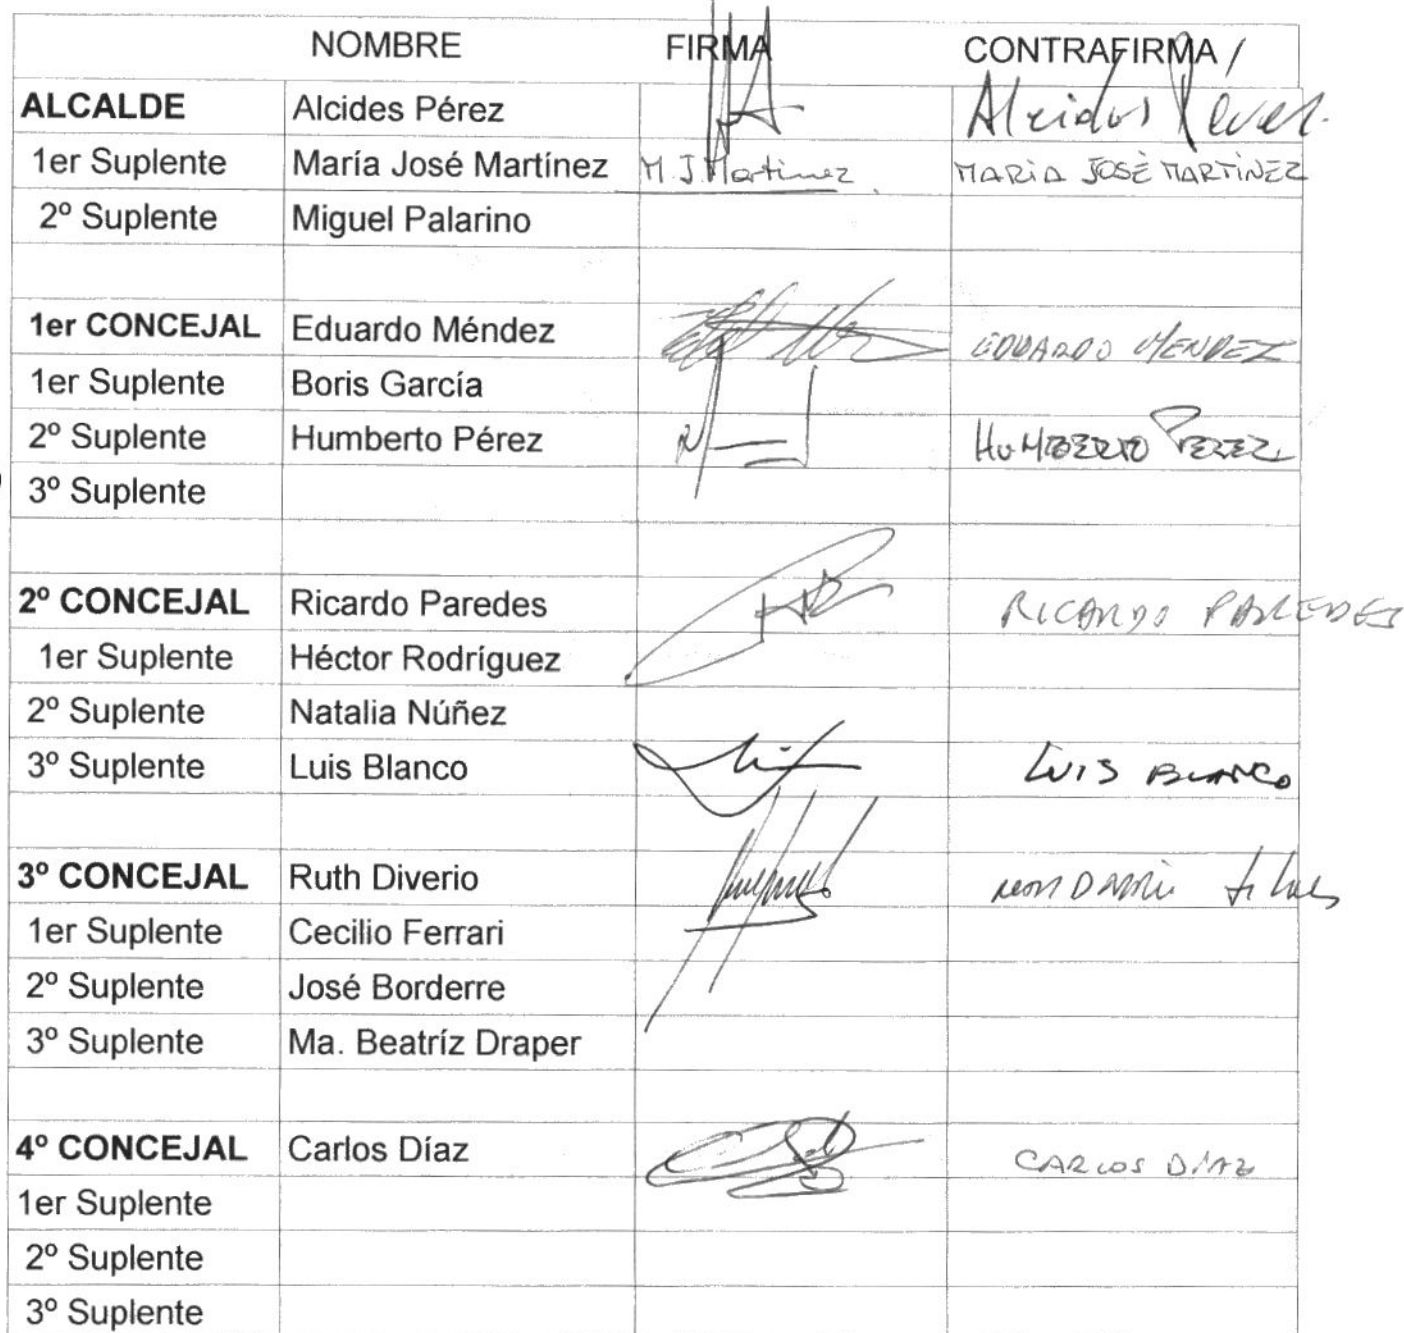 NOMBRE FIRMA CONTRAFIRMA
ALCALDE Alcides Pérez Alcides Pérez
1er Suplente María José Martínez M. J. Martinez MARIA JOSÉ MARTÍNEZ
2º Suplente Miguel Palarino
1er CONCEJAL Eduardo Méndez EDUARDO MENDEZ
1er Suplente Boris García
2º Suplente Humberto Pérez HUMBERTO PEREZ
3º Suplente
2º CONCEJAL Ricardo Paredes RICARDO PAREDES
1er Suplente Héctor Rodríguez
2º Suplente Natalia Núñez
3º Suplente Luis Blanco LUIS BLANCO
3º CONCEJAL Ruth Diverio
1er Suplente Cecilio Ferrari
2º Suplente José Borderre
3º Suplente Ma. Beatríz Draper
4º CONCEJAL Carlos Díaz CARLOS DÍAZ
1er Suplente
2º Suplente
3º Suplente